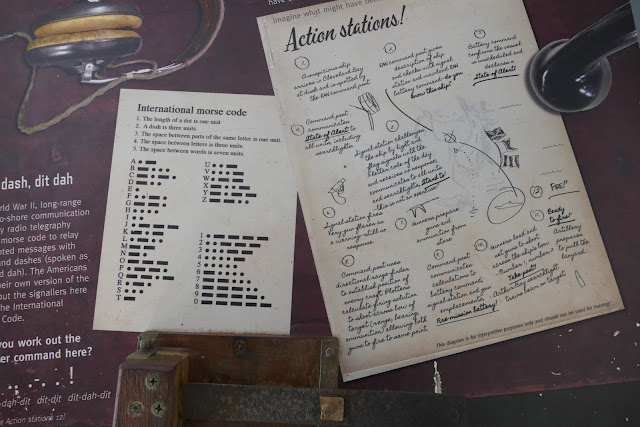 Imagine what might have
Action stations!
1
A suspicious ship
arrives in Cleveland Bay
at dusk and is spotted by
the RAN command post.
2
RAN command post gives
description of ship
and checks with signal
station and incoland RAN
Battery command: do you
know this ship?
3
Battery command
confirms the vessel
is unscheduled and
declares a
state of Alert
4
Command post
communicates
State of Alert to
all units, including
searchlights
5
Signal station challenges
the ship by light and
flag signals with the
letter code of the day
and receives no response,
communicates to all units
and searchlights Stand to
this is not an exercise!
6
Signal station fires
Very gun flares as
a warning: still no
response.
7
Gunners prepare
guns and
ammunition from
store
8
Command post uses
directional range finder
to establish position of
enemy craft. Plotters
calculate firing solution
to shoot across bow of
target (range, bearing,
ammunition) allowing both
guns to fire to same point
9
Command post
communicates
calculations to
battery command,
signal station and gun
emplacements.
Pre-mission battery!
10
Gunners load and
set guns to shoot
over the ship's bow
Number 1, number 2
Take post!
Anthor Bay searchlight
trains beam on target
11
Ready
to fire!
Artillery
prepares
to pull the
lanyard
12
FIRE!!
This diagram is for interpretive purposes only and should not be used for training!
International morse code
1. The length of a dot is one unit
2. A dash is three units.
3. The space between parts of the same letter is one unit.
4. The space between letters is three units.
5. The space between words is seven units.
A
B
C
D
E
F
G
H
I
J
K
L
M
N
O
P
Q
R
S
T
U
V
W
X
Y
Z
1
2
3
4
5
6
7
8
9
0
dash, dit dah
orld War II, long-range
o-shore communication
y radio telegraphy
morse code to relay
oted messages with
nd dashes (spoken as
d dah). The Americans
eir own version of the
out the signallers here
he International
Code.
you work out the
er command here?
-dah-dit dit-dit dit-dah-dit
e Action stations 12!